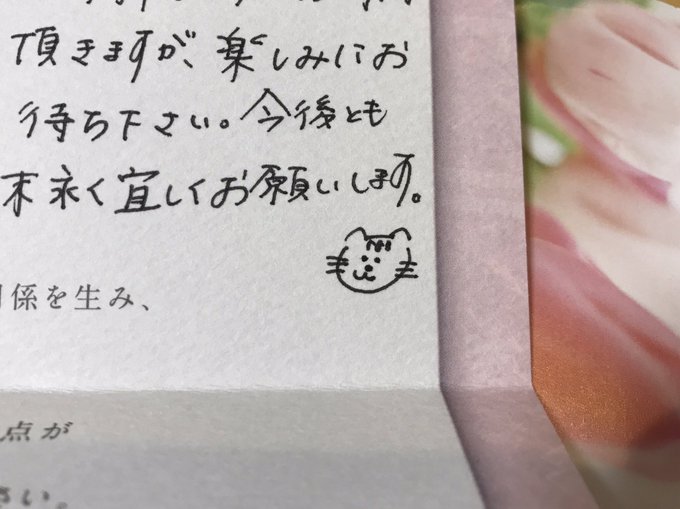 頂きますが、楽しみにお
待ち下さい。今後とも
末永く宜しくお願いします。
係を生み、
点が
さい。